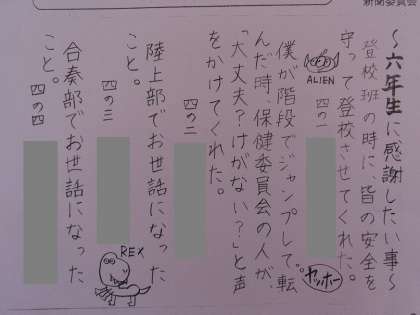 新聞委員会
～六年生に感謝したい事～
登校班の時に、皆の安全を
守って登校させてくれた。
ALIEN
四の一
ヤッホー
僕が階段でジャンプして、転
んだ時、保健委員会の人が、
「大丈夫？けがない？」と声
をかけてくれた。
四の二
陸上部でお世話になった
こと。
四の三
REX
合奏部でお世話になった
こと。
四の四